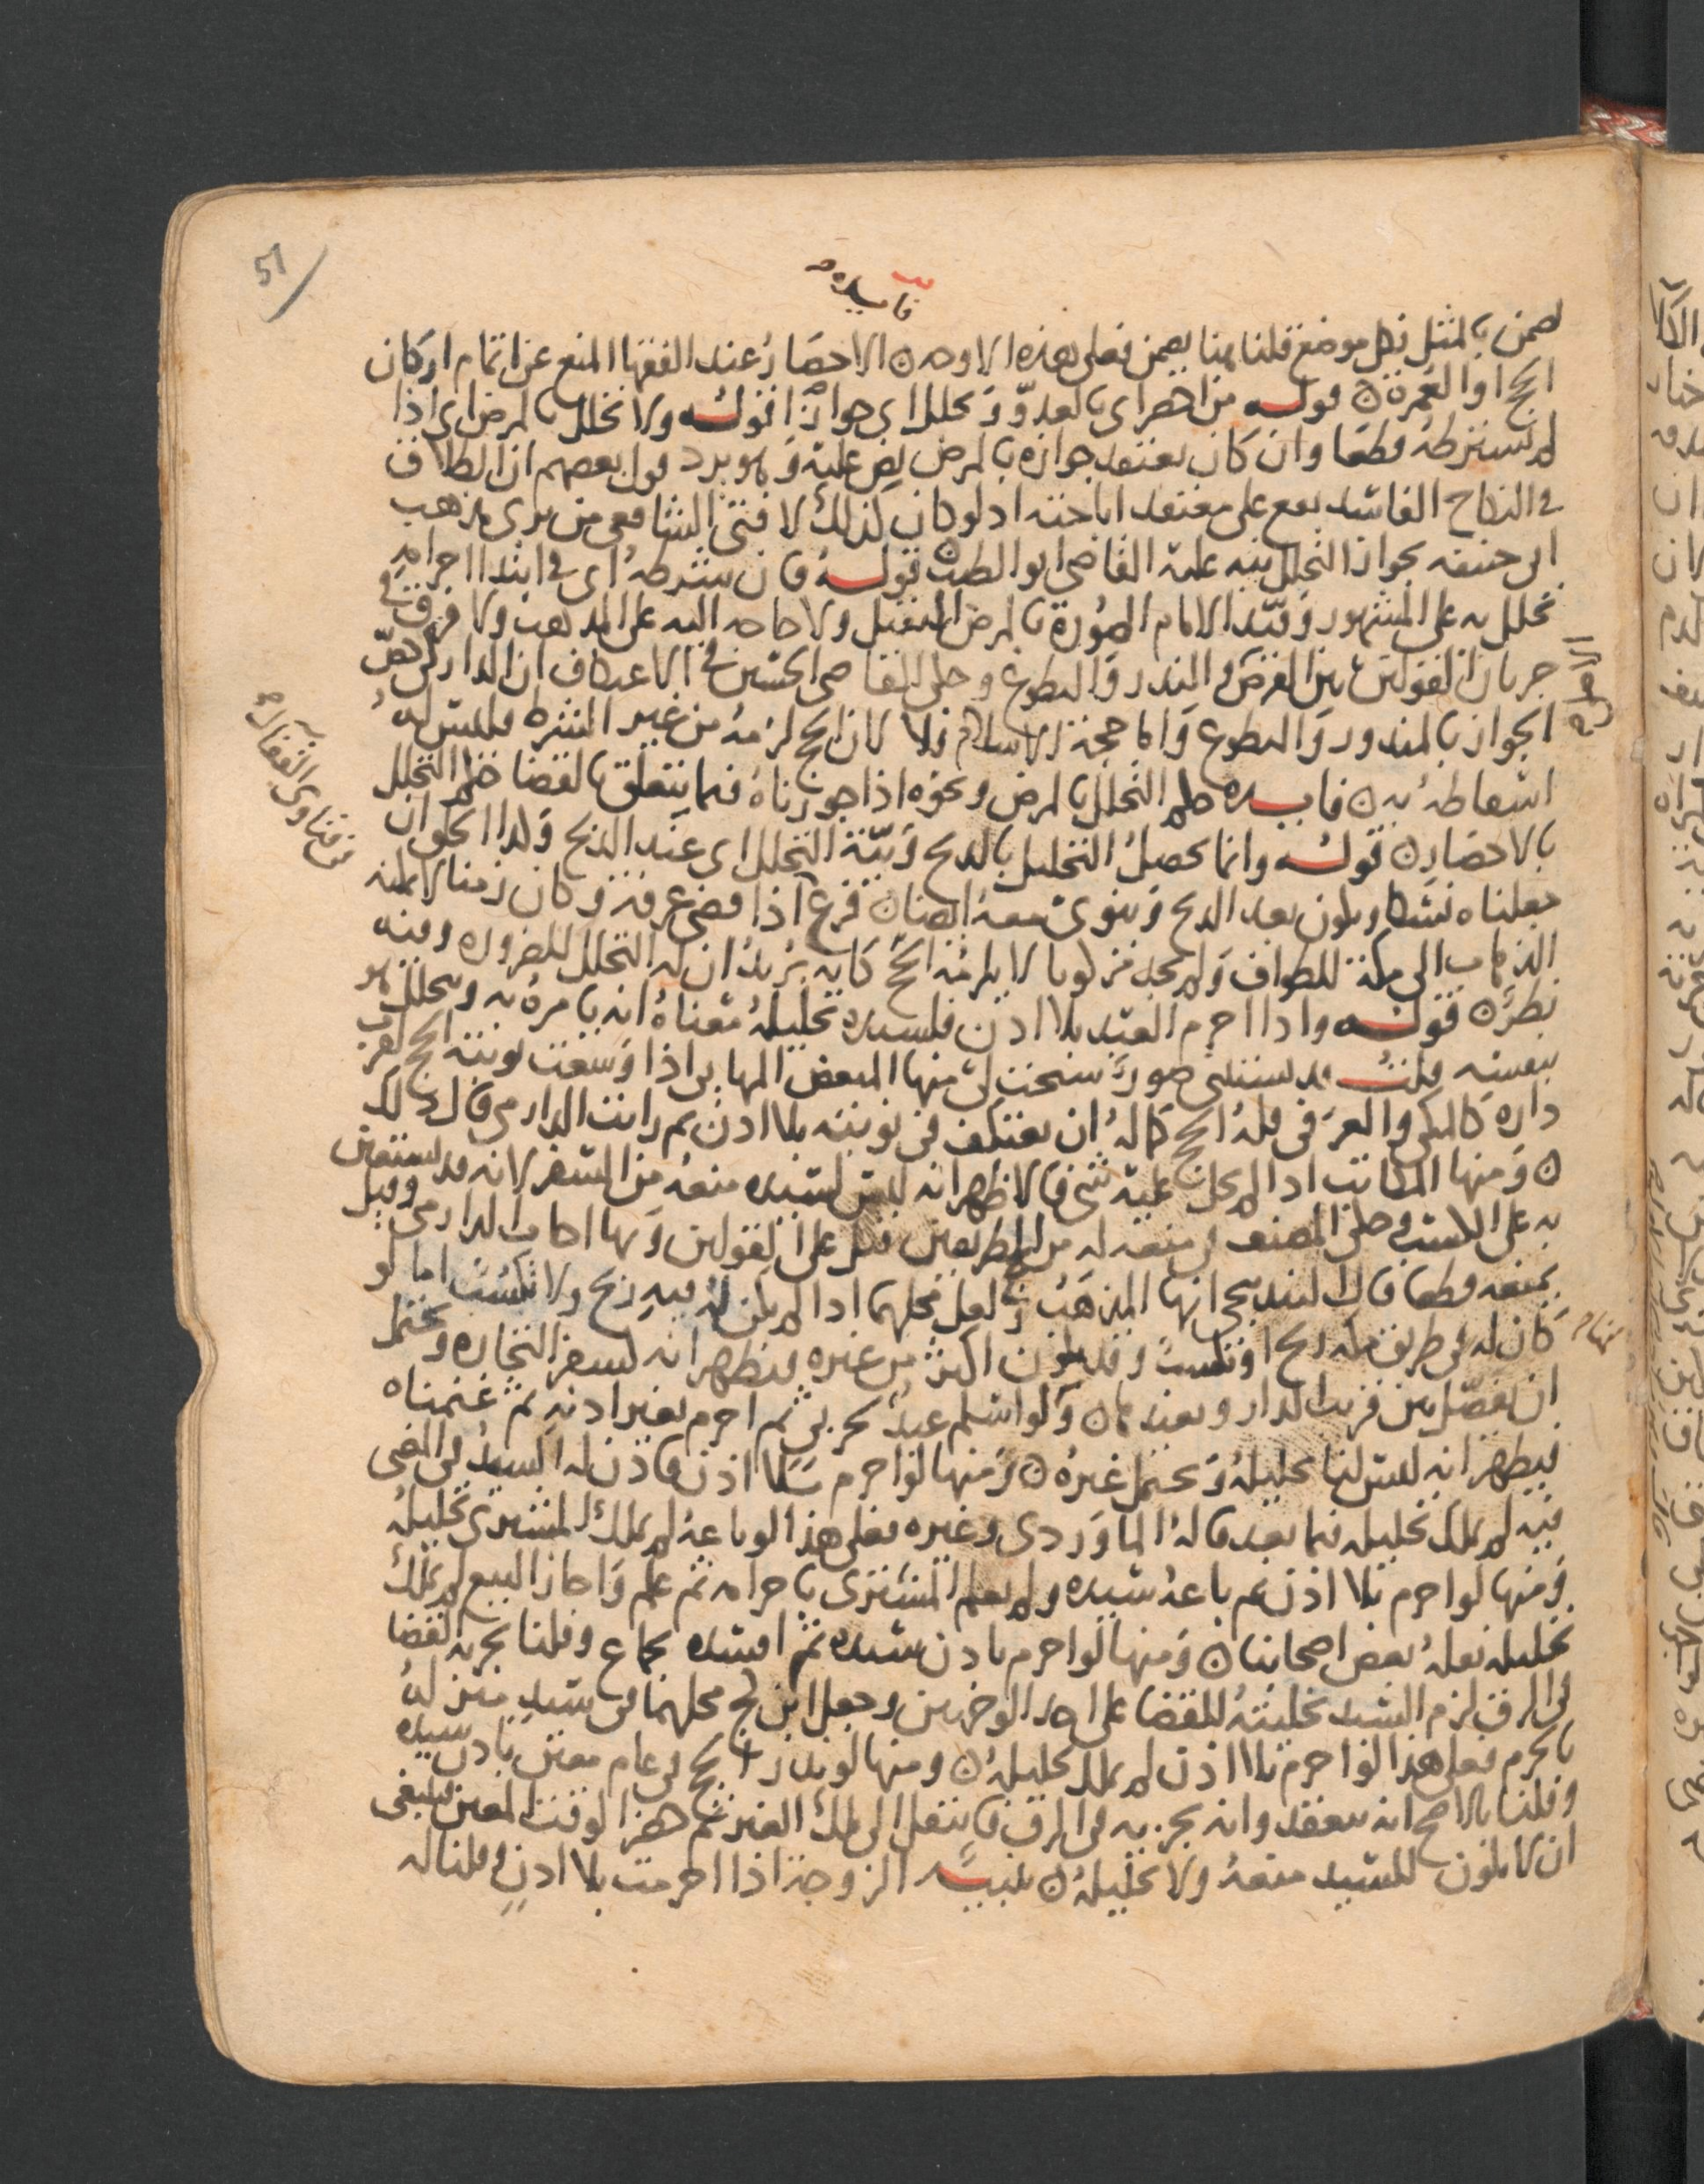 51
فائدة
يضمن بالمثل فكل موضع قلنا هنا يضمن فعلى هذه الاوجه ن الاحصار عند الفقها المنع عن اتمام اركان
الحج او العمرة ن قوله من احصر اي بالعدو تحلل اي جوازا قوله ولا تحلل بالمرض اي اذا
لم يشترطه قطعا وان كان يعتقد جوازه بالمرض نص عليه وهو يرد قول بعضهم ان الطلاق
في النكاح الفاسد يقع على معتقد اباحته اذ لو كان كذلك لافتى الشافعي من يرى مذهب
ابي حنيفه بجواز التحلل نبه عليه القاضي ابو الطيب قوله فان شرطه اي في ابتدا احرامه
تحلل به على المشهور وقيد الامام الصورة بالمرض الثقيل ولا حاجه اليه على المذهب ولا فرق في
جريان القولين بين الفرض والنذر والتطوع وحكى القاضي الحسين في الاعتكاف ان الداركي خص
الجواز بالمنذور والتطوع واما حجة الاسلام فلا لان الحج لزمه من غير الشرط فليس له
اسقاطه به ن فائده حكم التحلل بالمرض ونحوه اذا جوزناه فيما يتعلق بالقضا حكم التحلل
بالاحصار ن قوله وانما يحصل التحليل بالذبح ونية التحلل اي عند الذبح وكذا الحلق ان
جعلناه نسكا ويكون بعد الذبح وينوي معه ايضا ن فرع اذا قضي عرفه وكان زمنا لا يمكنه
الذهاب الى مكة للطواف ولم يجد مركوبا لا يلزمه الحج كانه يريد ان له التحلل للضروره وفيه
نظر ن قوله واذا احرم العبد بلا اذن فلسيده تحليله معناه انه يامره به ويتحلل هو
بنفسه قلت قد يستثنى صور سنحت لي منها المبعض المهايى اذا وسعت نوبته الحج لقرب
داره كالمكي والعرفي فله الحج كما له ان يعتكف في نوبته بلا اذن ثم رايت الدارمي قال ذلك
ن ومنها المكاتب اذا لم يحل عليه شي فالاظهر انه ليس لسيده منعه من السفر لانه قد يستعين
به على الكسب وحكى المصنف في منعه له من الحج طريقين قيل على القولين وبها اجاب الدارمي وقيل
يمنعه قطعا قال البندنيجي انها المذهب ن لعل محلهما اذا لم يكن له فيه ربح ولا تكسب اما لو
كان له في طريق مكه ربح او تكسب وقد يكون اكثر من غيره فيظهر انه كسفر التجاره ويحتمل
ان يفصل بين قريب الدار وبعيدها ن ولو اسلم عبد لحربي ثم احرم بغير اذنه ثم غنمناه
فيظهر انه ليس لنا تحليله ويحتمل غيره ن ومنها لو احرم بلا اذن فاذن له السيد في المضي
فيه لم يملك تحليله فيما بعد قاله الماوردي وغيره فعلى هذا لو باعه لم يملك المشتري تحليله
ومنها لو احرم بلا اذن ثم باعه سيده ولم يعلم المشتري باحرامه ثم علم واجاز البيع لم يملك
تحليله نقله بعض اصحابنا ن ومنها لو احرم باذن سيده ثم افسده بجماع وقلنا يجزيه القضا
في الرق لزم السيد تخليته للقضا على احد الوجهين وجعل ابن كج محلهما في سيد مبيز له
بالحرم فعلى هذا لو احرم بلا اذن لم يملك تحليله ن ومنها لو نذر الحج في عام معين باذن سيده
وقلنا بالاصح انه ينعقد وانه يجزيه في الرق فانتقل الى ملك الغير ثم حضر الوقت المعين فينبغي
ان لا يكون للسيد منعه ولا تحليله ن تنبيه الزوجة اذا احرمت بلا اذن وقلنا له
من فتاوى القفال
منهاج